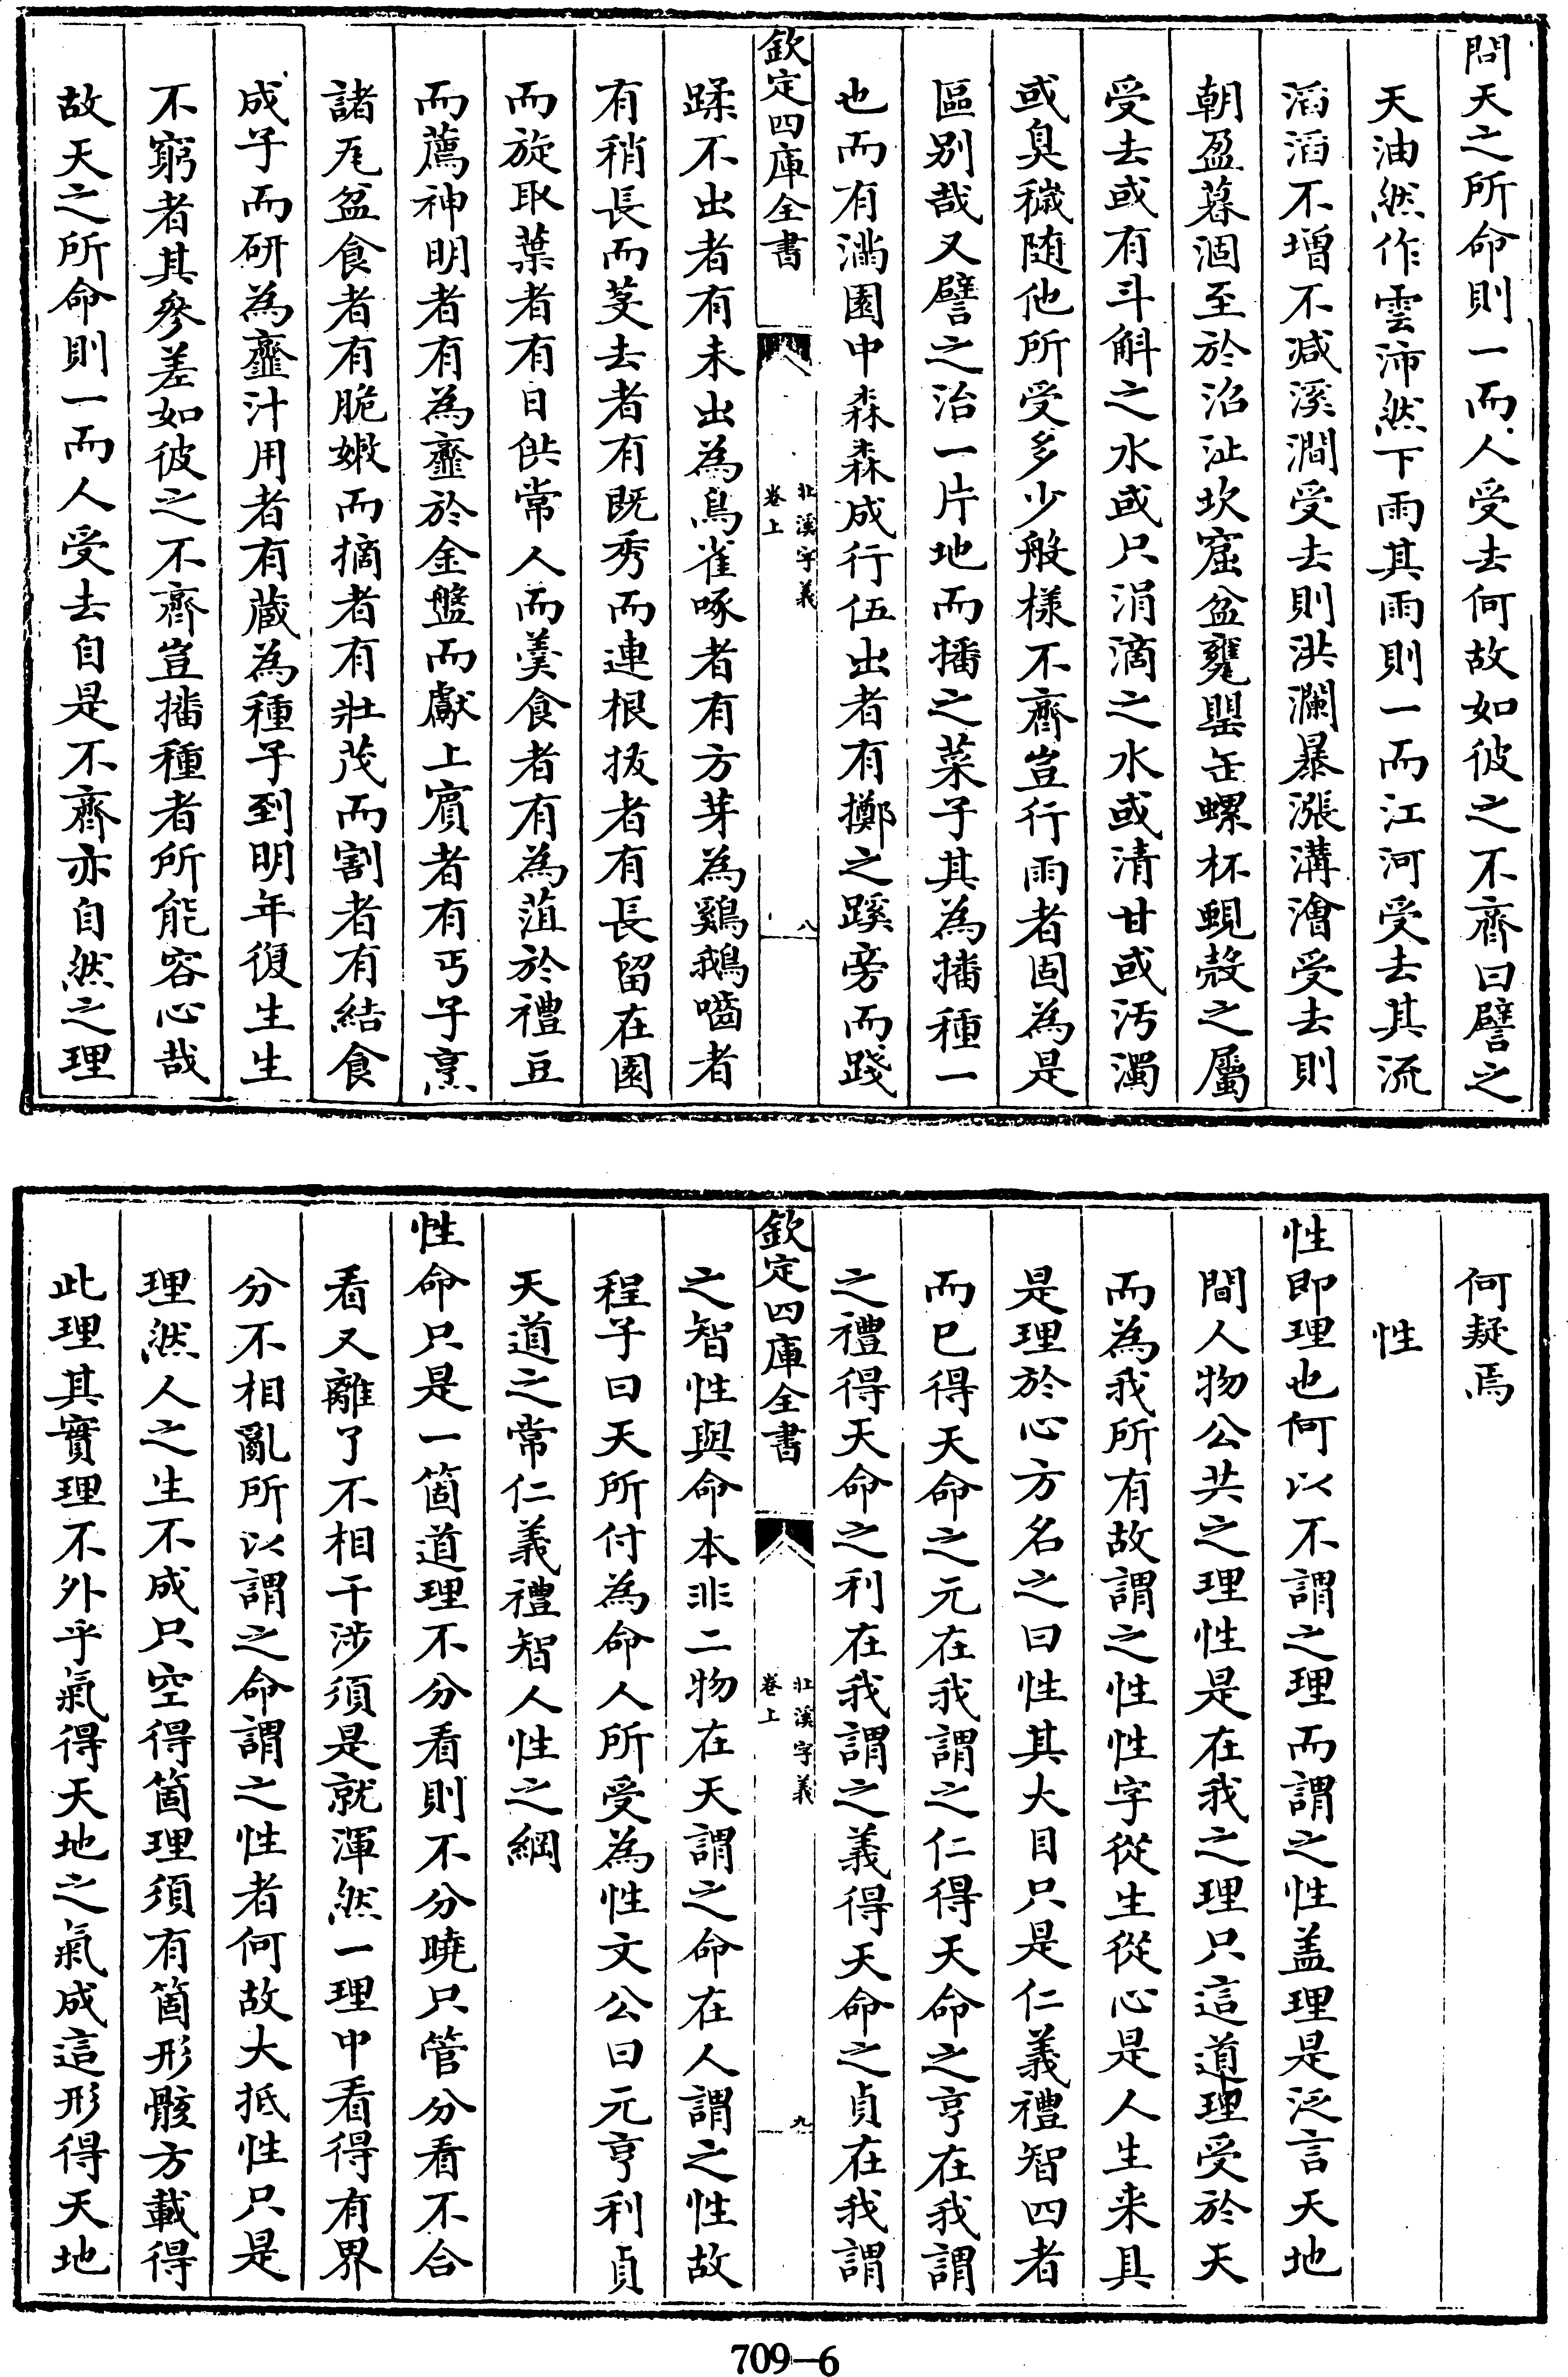 問天之所命則一而人受去何故如彼之不齊曰譬之
天油然作雲沛然下雨其雨則一而江河受去其流
滔滔不增不減溪澗受去則洪瀾暴漲溝澮受去則
朝盈暮涸至於沼沚坎窟盆甕罌缶螺杯蜆殼之屬
受去或有斗斛之水或只涓滴之水或清甘或汚濁
或臭穢随他所受多少般樣不齊豈行雨者固為是
區别哉又譬之治一片地而播之菜子其為播種一
也而有滿園中森森成行伍出者有擲之蹊旁而踐
欽定四庫全書
北溪字義
卷上
八
蹂不出者有未出為鳥雀啄者有方芽為鷄鵝嚙者
有稍長而芟去者有既秀而連根拔者有長留在園
而旋取葉者有日供常人而羮食者有為菹於禮豆
而薦神明者有為虀於金盤而獻上賓者有丐子烹
諸瓦盆食者有脆嫩而摘者有壯茂而割者有結食
成子而研為虀汁用者有蔵為種子到明年復生生
不窮者其參差如彼之不齊豈播種者所能容心哉
故天之所命則一而人受去自是不齊亦自然之理
何疑焉
性
性即理也何以不謂之理而謂之性盖理是泛言天地
間人物公共之理性是在我之理只這道理受於天
而為我所有故謂之性性字從生從心是人生来具
是理於心方名之曰性其大目只是仁義禮智四者
而已得天命之元在我謂之仁得天命之亨在我謂
之禮得天命之利在我謂之義得天命之貞在我謂
欽定四庫全書
北溪字義
卷上
九
之智性與命本非二物在天謂之命在人謂之性故
程子曰天所付為命人所受為性文公曰元亨利貞
天道之常仁義禮智人性之綱
性命只是一箇道理不分看則不分曉只管分看不合
看又離了不相干涉須是就渾然一理中看得有界
分不相亂所以謂之命謂之性者何故大抵性只是
理然人之生不成只空得箇理須有箇形骸方載得
此理其實理不外乎氣得天地之氣成這形得天地
709-6